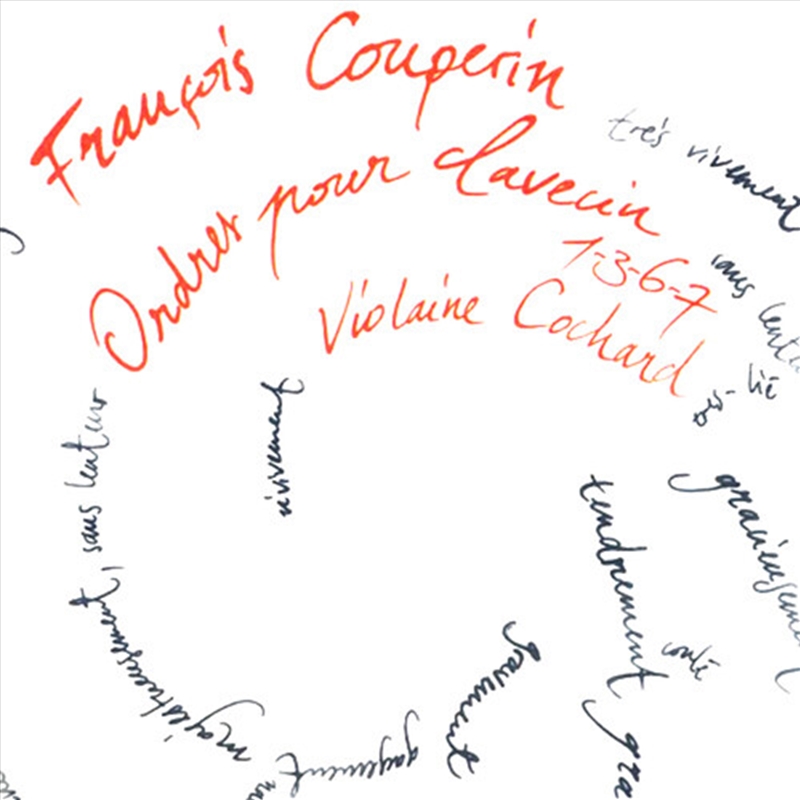 François Couperin
Ordres pour clavecin
1-3-6-7
Violaine Cochard
très vivement
sans lent
lié
vivement
sans lenteur
majestueusement,
gayement
tendrement
coulé
gracieusement
gra